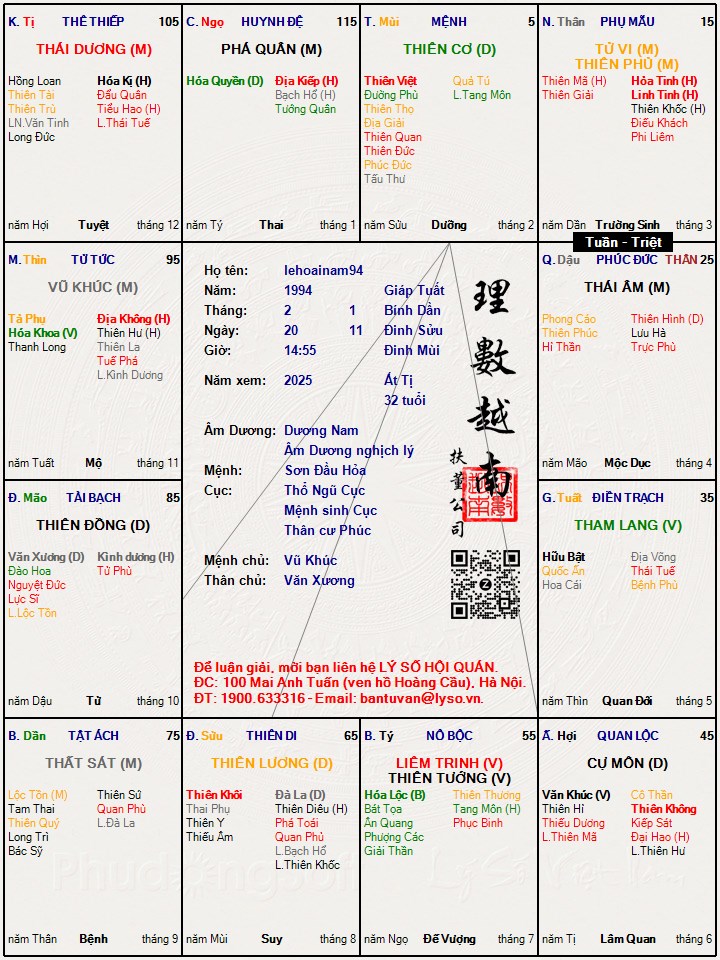 K. Tị THÊ THIẾP 105
THÁI DƯƠNG (M)
Hồng Loan Hóa Kị (H)
Thiên Tài Đẩu Quân
Thiên Trù Tiểu Hao (H)
LN.Văn Tinh L.Thái Tuế
Long Đức
năm Hợi Tuyệt tháng 12
C. Ngọ HUYNH ĐỆ 115
PHÁ QUÂN (M)
Hóa Quyền (D) Địa Kiếp (H)
Bạch Hổ (H)
Tướng Quân
năm Tý Thai tháng 1
T. Mùi MỆNH 5
THIÊN CƠ (D)
Thiên Việt Quả Tú
Đường Phù L.Tang Môn
Thiên Thọ
Địa Giải
Thiên Quan
Thiên Đức
Phúc Đức
Tấu Thư
năm Sửu Dưỡng tháng 2
N. Thân PHỤ MẪU 15
TỬ VI (M)
THIÊN PHỦ (M)
Thiên Mã (H) Hỏa Tinh (H)
Thiên Giải Linh Tinh (H)
Thiên Khốc (H)
Điếu Khách
Phi Liêm
năm Dần Trường Sinh tháng 3
Tuần - Triệt
M. Thìn TỬ TỨC 95
VŨ KHÚC (M)
Tả Phụ Địa Không (H)
Hóa Khoa (V) Thiên Hư (H)
Thanh Long Thiên La
Tuế Phá
L.Kình Dương
năm Tuất Mộ tháng 11
Họ tên: lehoainam94
Năm: 1994 Giáp Tuất
Tháng: 2 1 Bính Dần
Ngày: 20 11 Đinh Sửu
Giờ: 14:55 Đinh Mùi
Năm xem: 2025 Ất Tị
32 tuổi
Âm Dương: Dương Nam
Âm Dương nghịch lý
Mệnh: Sơn Đầu Hỏa
Cục: Thổ Ngũ Cục
Mệnh sinh Cục
Thân cư Phúc
Mệnh chủ: Vũ Khúc
Thân chủ: Văn Xương
理數越南
扶董公司
Để luận giải, mời bạn liên hệ LÝ SỐ HỘI QUÁN.
ĐC: 100 Mai Anh Tuấn (ven hồ Hoàng Cầu), Hà Nội.
ĐT: 1900.633316 - Email: bantuvan@lyso.vn.
Q. Dậu PHÚC ĐỨC THÂN 25
THÁI ÂM (M)
Phong Cáo Thiên Hình (D)
Thiên Phúc Lưu Hà
Hỉ Thần Trực Phù
năm Mão Mộc Dục tháng 4
Đ. Mão TÀI BẠCH 85
THIÊN ĐỒNG (D)
Văn Xương (D) Kình dương (H)
Đào Hoa Tử Phù
Nguyệt Đức
Lực Sĩ
L.Lộc Tồn
năm Dậu Tử tháng 10
G. Tuất ĐIỀN TRẠCH 35
THAM LANG (V)
Hữu Bật Địa Võng
Quốc Ấn Thái Tuế
Hoa Cái Bệnh Phù
năm Thìn Quan Đới tháng 5
B. Dần TẬT ÁCH 75
THẤT SÁT (M)
Lộc Tồn (M) Thiên Sứ
Tam Thai Quan Phủ
Thiên Quý L.Đà La
Long Trì
Bác Sỹ
năm Thân Bệnh tháng 9
Đ. Sửu THIÊN DI 65
THIÊN LƯƠNG (D)
Thiên Khôi Đà La (D)
Thai Phụ Thiên Diêu (H)
Thiên Y Phá Toái
Thiếu Âm Quan Phủ
L.Bạch Hổ
L.Thiên Khốc
năm Mùi Suy tháng 8
B. Tý NÔ BỘC 55
LIÊM TRINH (V)
THIÊN TƯỚNG (V)
Hóa Lộc (B) Thiên Thương
Bát Tọa Tang Môn (H)
Ân Quang Phục Binh
Phượng Các
Giải Thần
năm Ngọ Đế Vượng tháng 7
Ấ. Hợi QUAN LỘC 45
CỰ MÔN (D)
Văn Khúc (V) Cô Thần
Thiên Hỉ Thiên Không
Thiếu Dương Kiếp Sát
L.Thiên Mã Đại Hao (H)
L.Thiên Hư
năm Tị Lâm Quan tháng 6